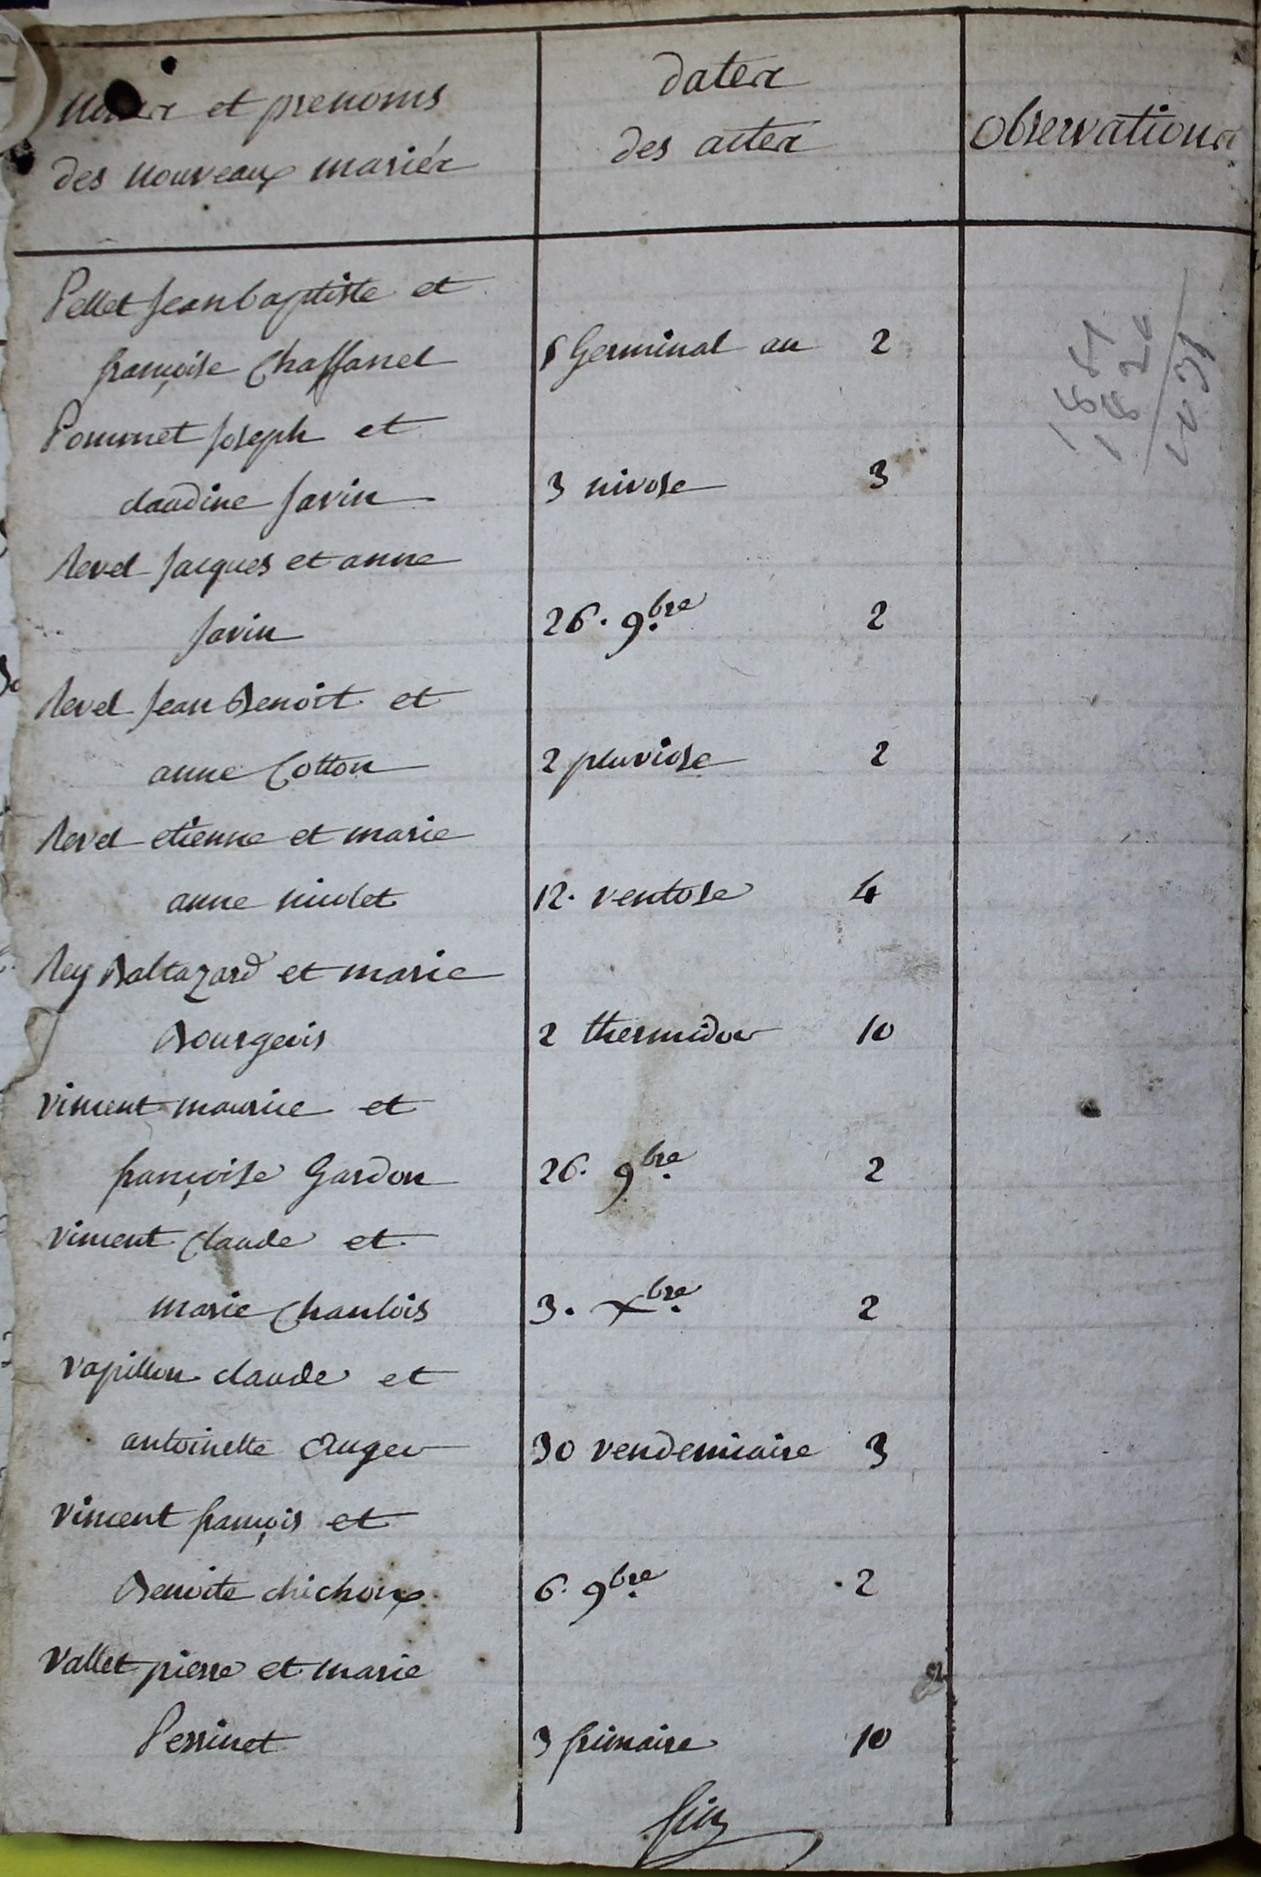 Noms et prenoms
des nouveaux mariés
dates
des actes
Observations
Pellet Jean baptiste et
françoise Chaffanel
8 Germinal an 2
Pommet Joseph et
claudine Javin
3 nivose 3
Revel Jacques et anne
Javin
26. 9.bre 2
Revel Jean Benoit et
anne Cotton
2 pluviose 2
Revel etienne et marie
anne nicolet
12. ventose 4
Rey Baltazard et marie
Bourgeois
2 thermidor 10
Vincent maurice et
françoise Gardon
26. 9.bre 2
Vincent Claude et
marie Chanlois
3. Xbre 2
Vapillon claude et
antoinette Auger
30 vendemiaire 3
Vincent françois et
Benoite chichoux
6. 9bre 2
Vallet pierre et marie
Perrinet
3 frimaire 10
fin